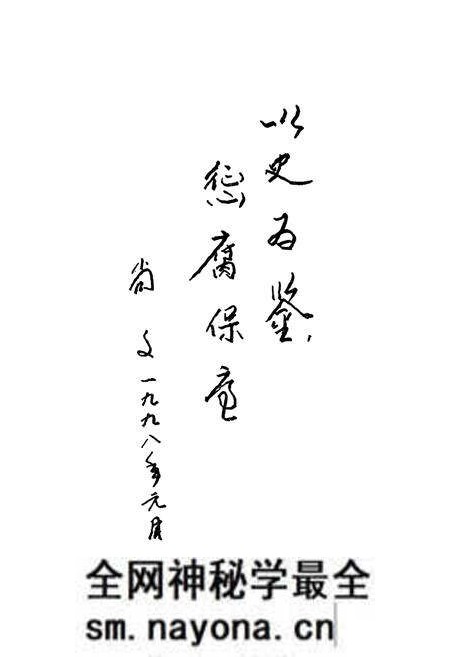 以史为鉴，
惩腐保廉
尚文一九九八年元月
全网神秘学最全
sm.nayona.cn